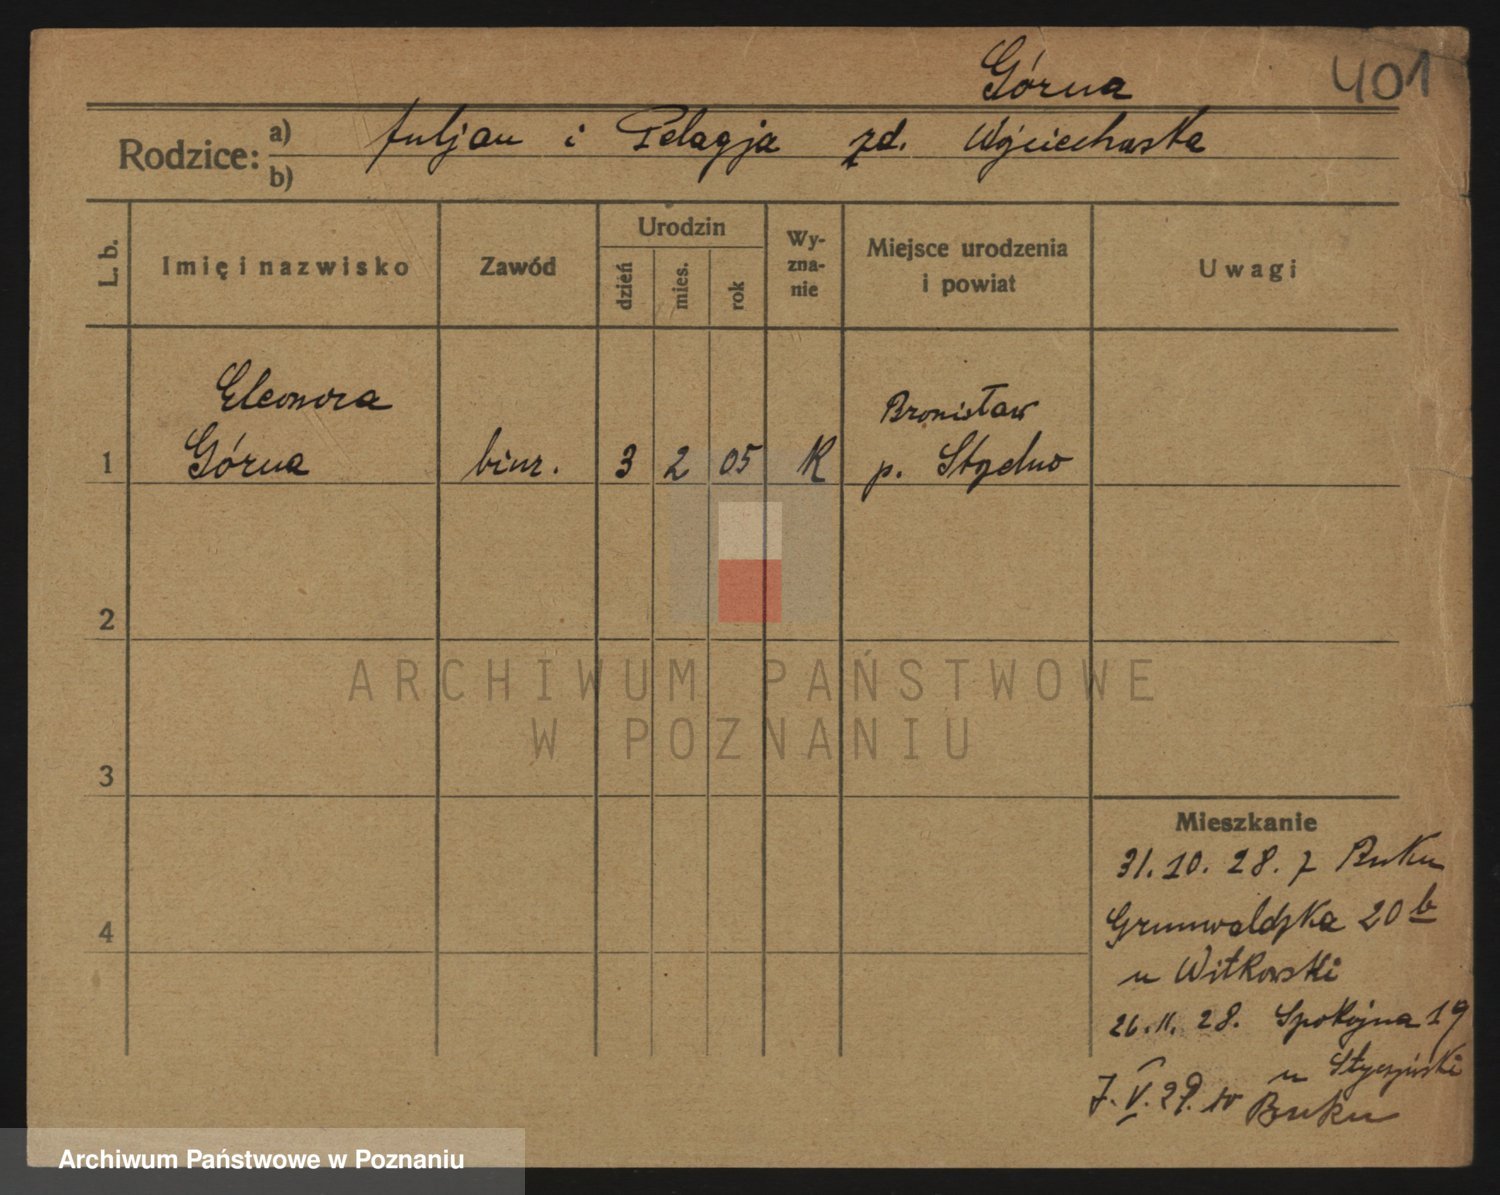 Górna
401
Rodzice: a) Juljan i Pelagja zd. Wojciechowska
b)
L. b.
Imię i nazwisko
Zawód
Urodzin
dzień
mies.
rok
Wy-
zna-
nie
Miejsce urodzenia
i powiat
Uwagi
Eleonora
1 Górna biur. 3 2 05 K
Bronisław
p. Strzelno
2
3
4
ARCHIWUM PAŃSTWOWE
W POZNANIU
Mieszkanie
31. 10. 28. z Buku
Grunwaldzka 20 b
u Witkowski
26. 11. 28. Spokojna 19
u Styczyński
7. V. 29. w Buku
Archiwum Państwowe w Poznaniu